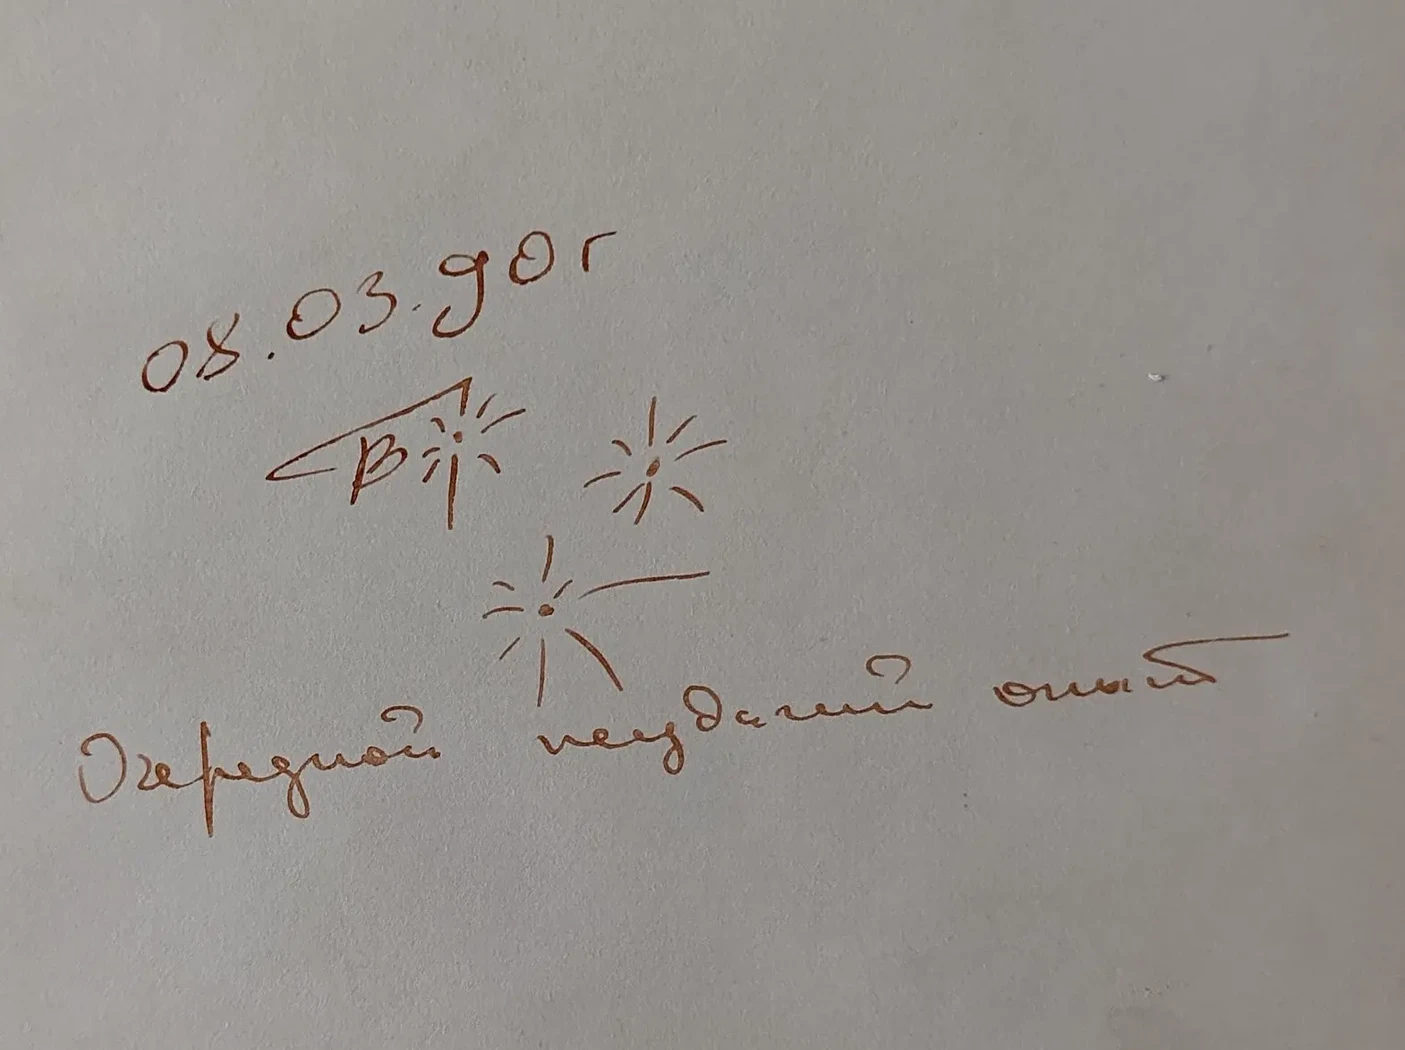 08.03.90 г
В
Очередной неудачный опыт